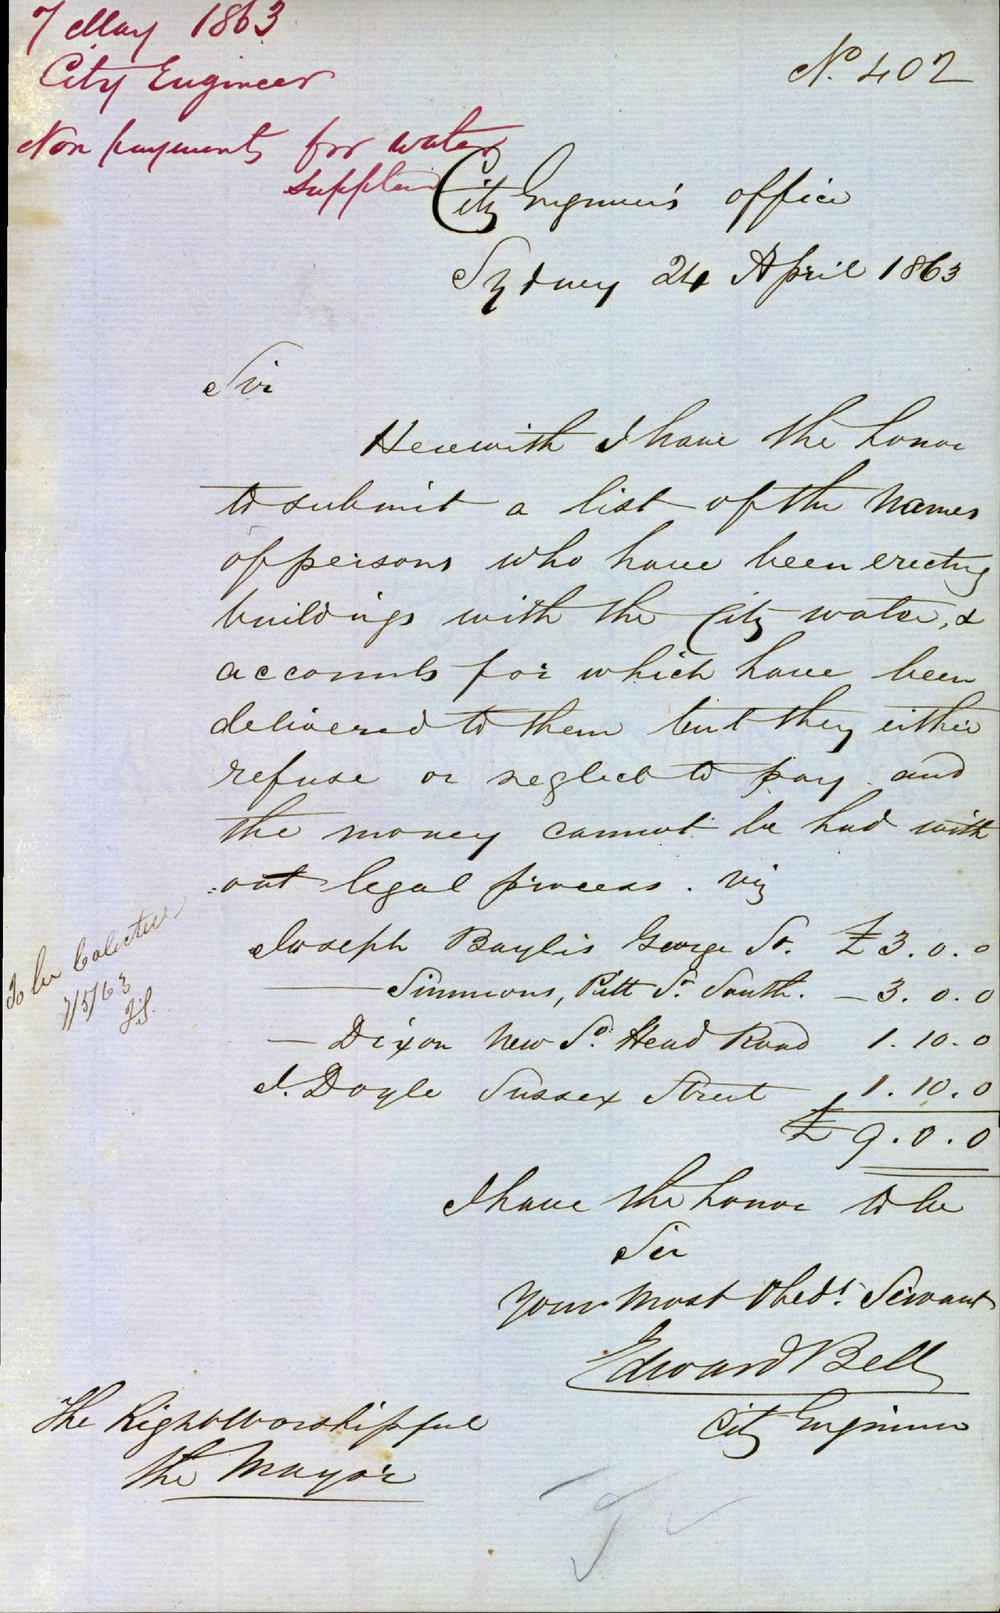 7 May 1863
City Engineer
Non payments for water
supplied
No. 402
City Engineer's office
Sydney 24 April 1863
Sir
Herewith I have the honor
to submit a list of the Names
of persons who have been erecting
buildings with the City water, &
accounts for which have been
delivered to them but they either
refuse or neglect to pay and
the money cannot be had with
out legal process. viz
Joseph Baylis George St. £3.0.0
— Simmons, Pitt St. South. — 3.0.0
— Dixon New So. Head Road 1.10.0
J. Doyle Sussex Street 1.10.0
£9.0.0
To be Collected
7/5/63
I have the honor to be
Sir
Your Most Obedt. Servant
Edward Bell
City Engineer
The Right Worshipful
the Mayor